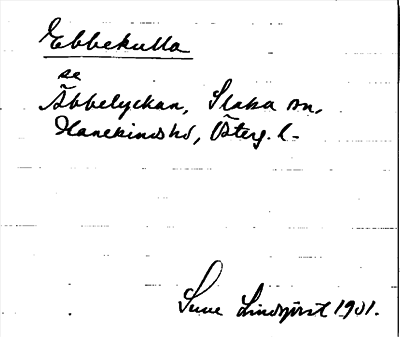 Ebbekulla
se
Äbbelyckan, Slaka sn,
Hanekinds hd, Österg. l.
Sune Lindqvist 1901.